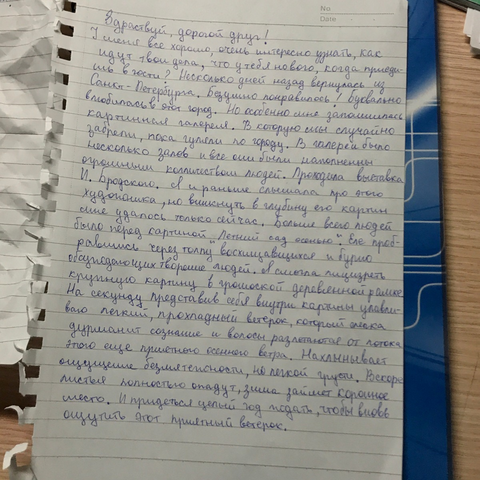 No
Date
Здравствуй, дорогой друг!
У меня все хорошо, очень интересно узнать, как
идут твои дела, что у тебя нового, когда приедешь
в гости? Несколько дней назад вернулась из
Санкт-Петербурга. Безумно понравилось! Буквально
влюбилась в этот город. Но особенно мне запомнилась
картинная галерея. В которую мы случайно
забрели, пока гуляли по городу. В галерее было
несколько залов и все они были наполнены
огромным количеством людей. Проходила выставка
И. Бродского. Я и раньше слышала про этого
художника, но вникнуть в глубину его картин
мне удалось только сейчас. Больше всего людей
было перед картиной "Летний сад осенью". Еле проб-
равшись через толпу восхищающихся и бурно
обсуждающих творение людей. Я смогла лицезреть
крупную картину в громоздкой деревянной рамке
На секунду представив себя внутри картины улавли-
ваю легкий, прохладный ветерок, который слегка
дурманит сознание и волосы разлетаются от потока
этого еще приятного осеннего ветра. Нахлынывает
ощущение безмятежности, но легкой грусти. Вскоре
листья полностью опадут, зима займет коронное
место. И придеться целый год ждать, чтобы вновь
ощутить этот приятный ветерок.